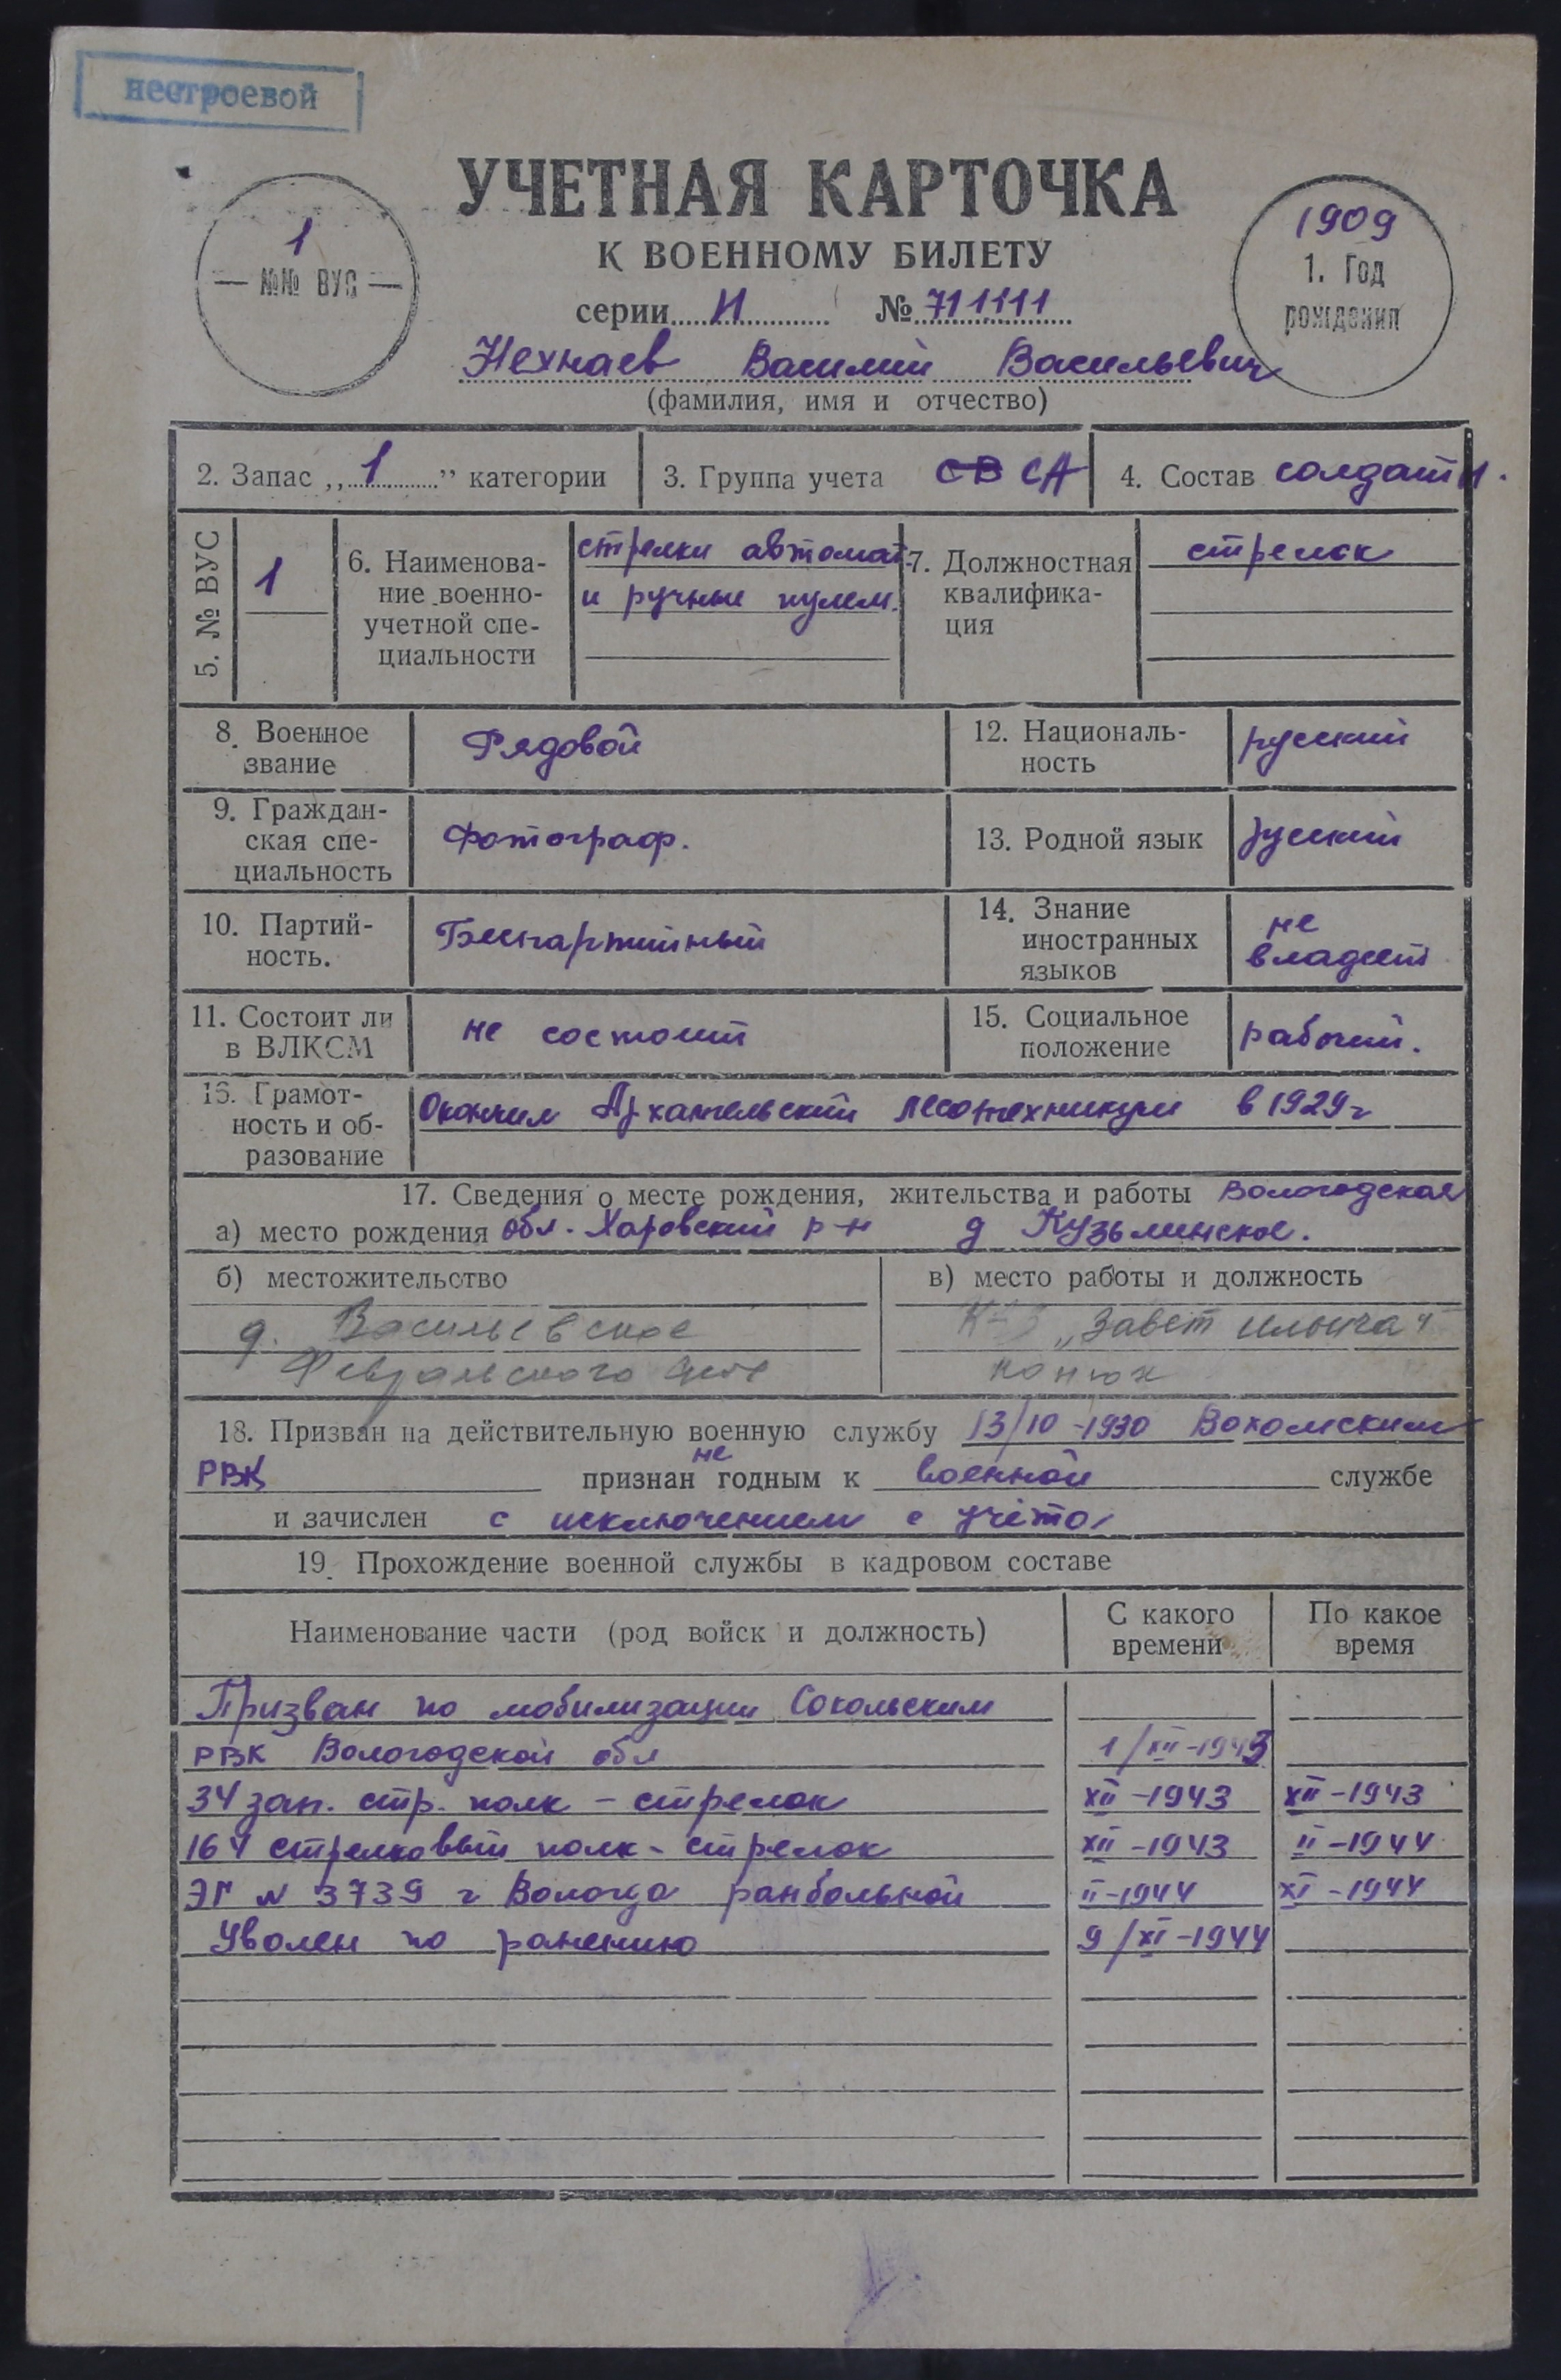 нестроевой
УЧЕТНАЯ КАРТОЧКА
К ВОЕННОМУ БИЛЕТУ
1
— №№ ВУС —
1909
1. Год
рождения
серии И № 711111
Нехнаев Василий Васильевич
(фамилия, имя и отчество)
2. Запас „1” категории
3. Группа учета СВ СА
4. Состав солдаты.
5. № ВУС
1
6. Наименова-
ние военно-
учетной спе-
циальности
стрелки автомат.
и ручные пулем.
7. Должностная
квалифика-
ция
стрелок
8. Военное
звание
Рядовой
12. Националь-
ность
русский
9. Граждан-
ская спе-
циальность
Фотограф.
13. Родной язык
русский
10. Партий-
ность.
Беспартийный
14. Знание
иностранных
языков
не
владеет
11. Состоит ли
в ВЛКСМ
не состоит
15. Социальное
положение
рабочий.
16. Грамот-
ность и об-
разование
Окончил Архангельский лесотехникум в 1929г
17. Сведения о месте рождения, жительства и работы Вологодская
а) место рождения обл. Харовский р-н д Кузьминское.
б) местожительство
д. Васильевское
Февральского
в) место работы и должность
К-з „Завет Ильича"
конюх
18. Призван на действительную военную службу 13/10-1930 Вохомским
РВК признан не годным к военной службе
и зачислен с исключением с учёта
19. Прохождение военной службы в кадровом составе
Наименование части (род войск и должность)
С какого
времени
По какое
время
Призван по мобилизации Сокольским
РВК Вологодской обл 1/XII-1943
34 зап. стр. полк - стрелок XII-1943 XII-1943
164 стрелковый полк - стрелок XII-1943 II-1944
ЭГ N 3739 г Вологда ранбольной II-1944 XI-1944
Уволен по ранению 9/XI-1944